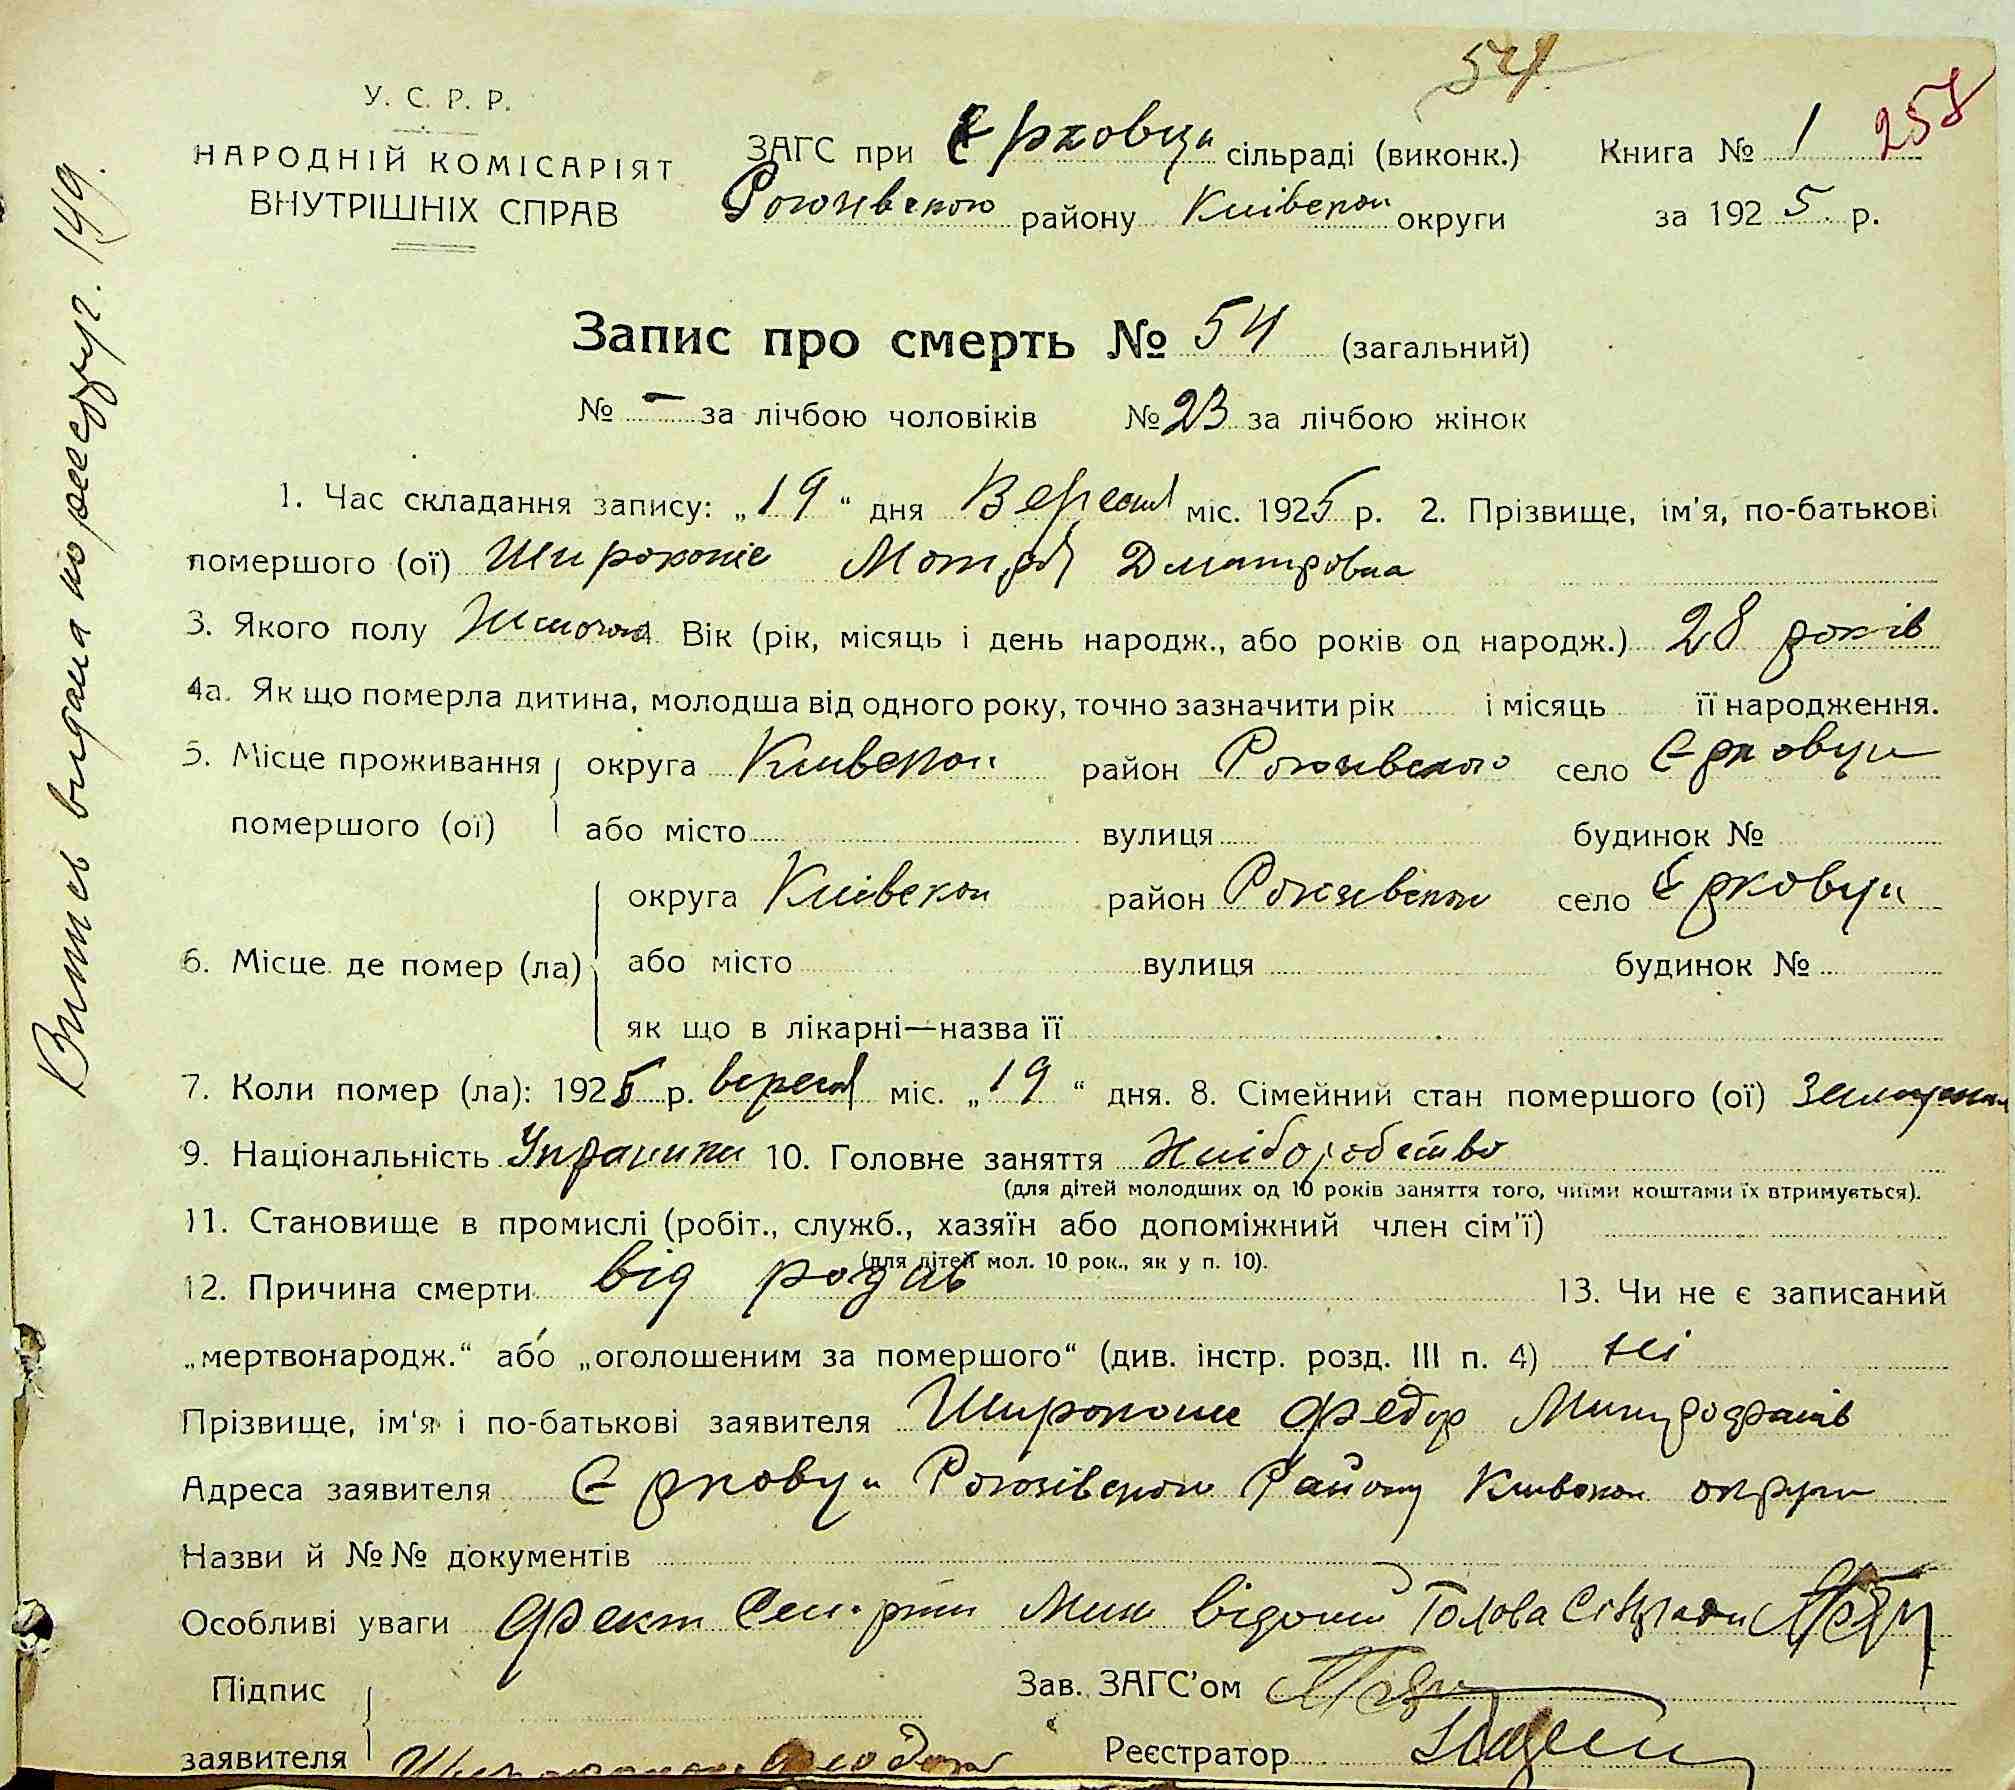 54
У. С. Р. Р.
НАРОДНІЙ КОМІСАРІЯТ
ВНУТРІШНІХ СПРАВ
ЗАГС при Єрковци сільраді (виконк.) Книга № 1
Рогозівского району Київскои округи за 1925 р.
Запис про смерть № 54 (загальний)
№ - за лічбою чоловіків № 23 за лічбою жінок
1. Час складання запису: „19“ дня Вересня міс. 1925 р. 2. Прізвище, ім'я, по-батькові
помершого (ої) Широкопіс Мотря Дматровна
3. Якого полу Жіночоа Вік (рік, місяць і день народж., або років од народж.) 28 років
4а. Як що померла дитина, молодша від одного року, точно зазначити рік і місяць її народження.
5. Місце проживання округа Київскои район Рогозівского село Єрковци
помершого (ої) або місто вулиця будинок №
округа Київскои район Рогозівского село Єрковци
6. Місце де помер (ла) або місто вулиця будинок №
як що в лікарні—назва її
7. Коли помер (ла): 1925 р. вересня міс. „19“ дня. 8. Сімейний стан помершого (ої)
9. Національність Украинка 10. Головне заняття Хліборобство
(для дітей молодших од 10 років заняття того, чиїми коштами їх втримується).
11. Становище в промислі (робіт., служб., хазяїн або допоміжний член сім'ї)
(для дітей мол. 10 рок., як у п. 10).
12. Причина смерти від родив 13. Чи не є записаний
„мертвонародж.“ або „оголошеним за помершого“ (див. інстр. розд. III п. 4) ні
Прізвище, ім'я і по-батькові заявителя Широкопис Федор
Адреса заявителя Єрковци Рогозівского Району Київскои округи
Назви й №№ документів
Особливі уваги Факт Смерти Мині відоми Голова Сільради
Підпис Зав. ЗАГС'ом
заявителя Реєстратор
Випись видана по реестру г. 149.